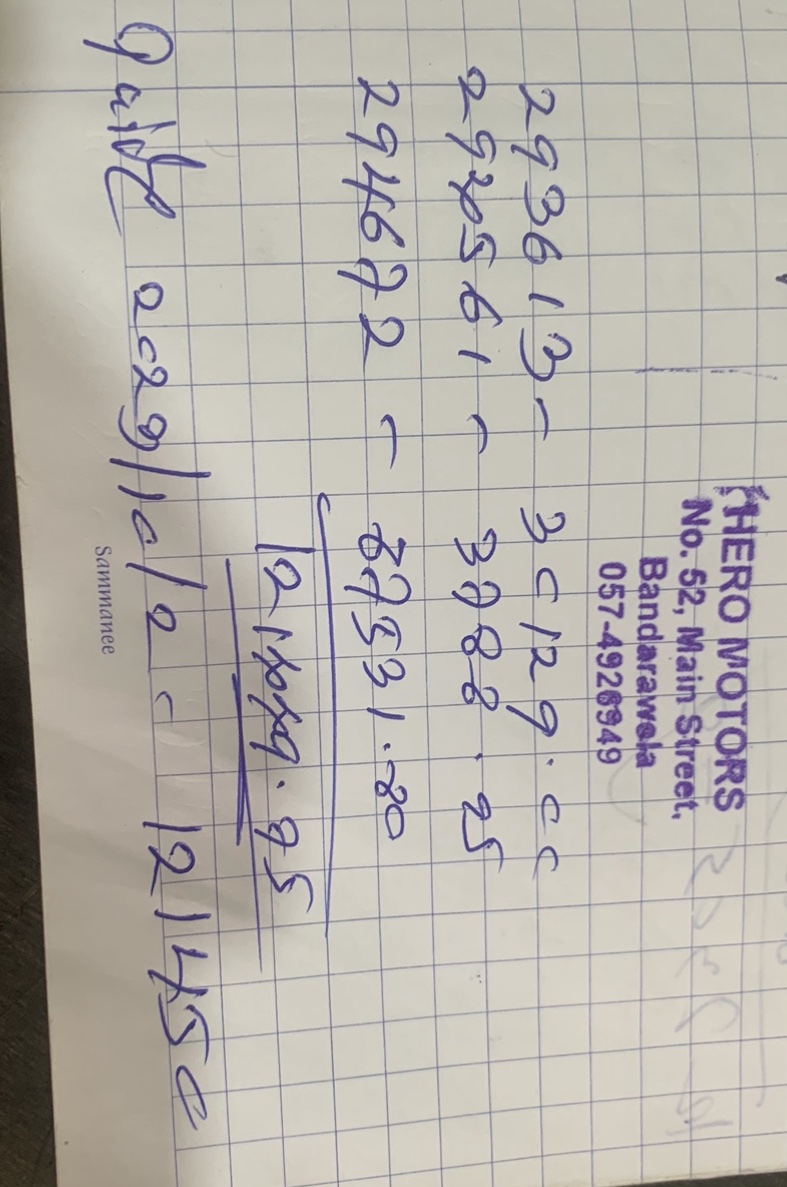 HERO MOTORS
No. 52, Main Street,
Bandarawela
057-4926949
293613 - 30129.00
292561 - 3788.25
294672 - 87531.80
121449.95
2029/10/20 121450
Sammanee